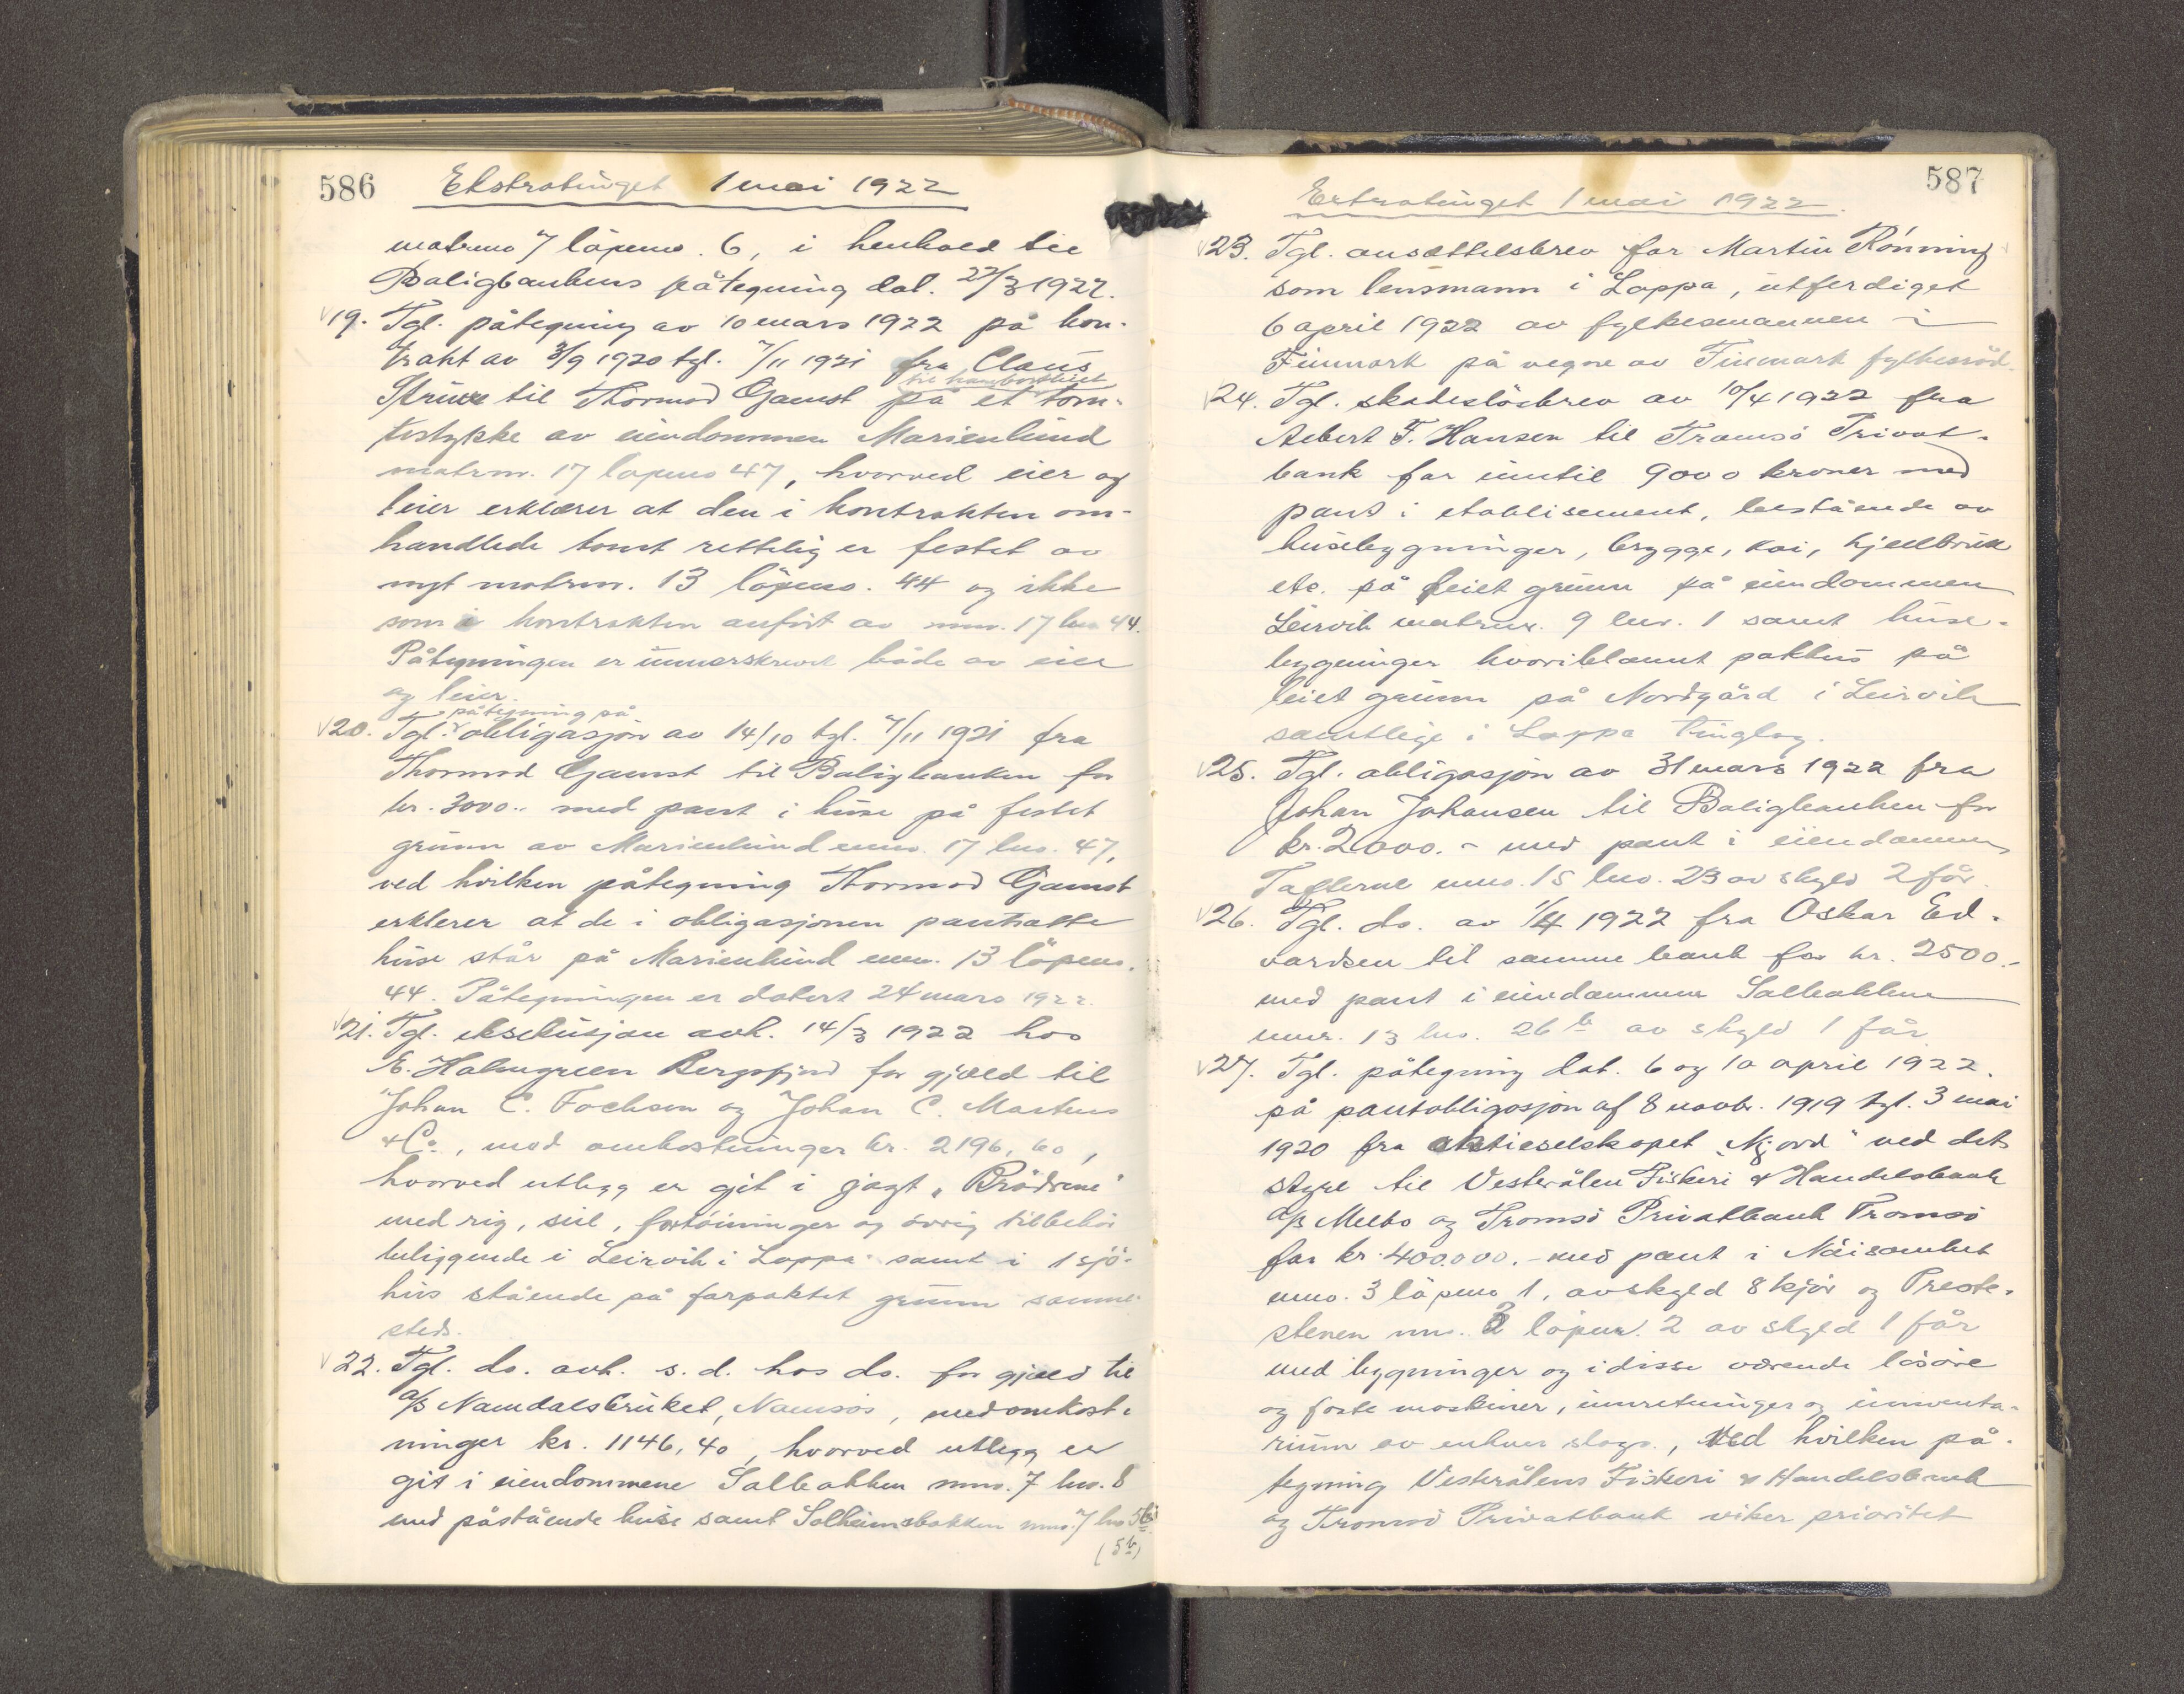 586 Ekstratinget 1 mai 1922
matrno 7 löpeno. 6, i henhold til
Boligbankens påtegning dat. 27/3 1922.
19. Tgl. påtegning av 10 mars 1922 på kon-
trakt av 3/9 1920 tgl. 7/11 1921 fra Claus
til Thormod Gamst på et tom-
testykke av eiendommen Marienlund
matrnr. 17 löpeno 47, hvorved eier og
leier erklærer at den i kontrakten om-
handlede tomt rettelig er festet av
nyt matrnr. 13 löpeno. 44 og ikke
som i kontrakten anfört av mnr. 17 lno 44.
Påtegningen er unnerskrevet både av eier
og leier.
påtegning på
20. Tgl. obligasjon av 14/10 tgl. 7/11 1921 fra
Thormod Gamst til Boligbanken for
kr. 3000.- med pant i huse på festet
grunn av Marienlund mno. 17 lno. 47,
ved hvilken påtegning Thormod Gamst
erklerer at de i obligasjonen pantsatte
huse står på Marienlund mno. 13 löpeno.
44. Påtegningen er datert 24 mars 1922.
21. Tgl. eksekusjon avh. 14/3 1922 hos
E. Holmgreen Bergsfjord for gjæld til
Johan C. Fochsen og Johan C. Martens
& Co., med omkostninger kr. 2196,60,
hvorved utlegg er git i jagt „Brödrene"
med rig, seil, fortöininger og övrig tilbehör
beliggende i Leirvik i Loppa samt i 1 sjö-
hus stående på forpaktet grunn samme-
steds.
22. Tgl. do. avh. s.d. hos do. for gjæld til
A/S Namdalsbruket, Namsos, med omkost-
ninger kr. 1146,40, hvorved utlegg er
git i eiendommene Solbakken mno. 7 lno. 8
med påstående huse samt Solheimsbakken mno. 7 lno 56
(5b)
587
Extratinget 1 mai 1922.
23. Tgl. ansættelsbrev for Martin Rönning
som lensmann i Loppa, utferdiget
6 april 1922 av fylkesmannen i
Finmark på vegne av Finmark fylkesråd.
24. Tgl. skadeslösbrev av 10/4 1922 fra
Albert F. Hansen til Tromsö Privat-
bank for inntil 9000 kroner med
pant i etablisement, bestående av
husebygninger, brygge, kai, hjellbruk
etc. på leiet grunn på eiendommen
Leirvik matrnr. 9 lnr. 1 samt huse-
bygninger hvoriblannt pakhus på
leiet grunn på Nordgård i Leirvik
samtlige i Loppa tinglag.
25. Tgl. obligasjon av 31 mars 1922 fra
Johan Johansen til Boligbanken for
kr. 2000.- med pant i eiendommen
Tofterne mno. 15 lno. 23 av skyld 2 før.
26. Tgl. do. av 1/4 1922 fra Oskar Ed-
vardsen til samme bank for kr. 2500.-
med pant i eiendommen Solbakken
mnr. 13 lno. 26 b av skyld 1 får
27. Tgl. påtegning dat. 6 og 10 april 1922.
på pantobligasjon af 8 novbr. 1919 tgl. 3 mai
1920 fra aktieselskapet „Njord" ved dets
styre til Vesterålen Fiskeri & Handelsbank
A/S Melbo og Tromsö Privatbank Tromsö
for kr. 400.000.- med pant i
mno. 3 löpeno 1, avskyld 8 kjör og Preste-
stenen mno. 3 löpenr. 2 av skyld 1 får
med bygninger og i disse værende lösöre
og faste maskiner, innretninger og innventa-
rium av enhver slags, Ved hvilken på-
tegning Vesterålens Fiskeri & Handelsbank
og Tromsö Privatbank viker prioritet